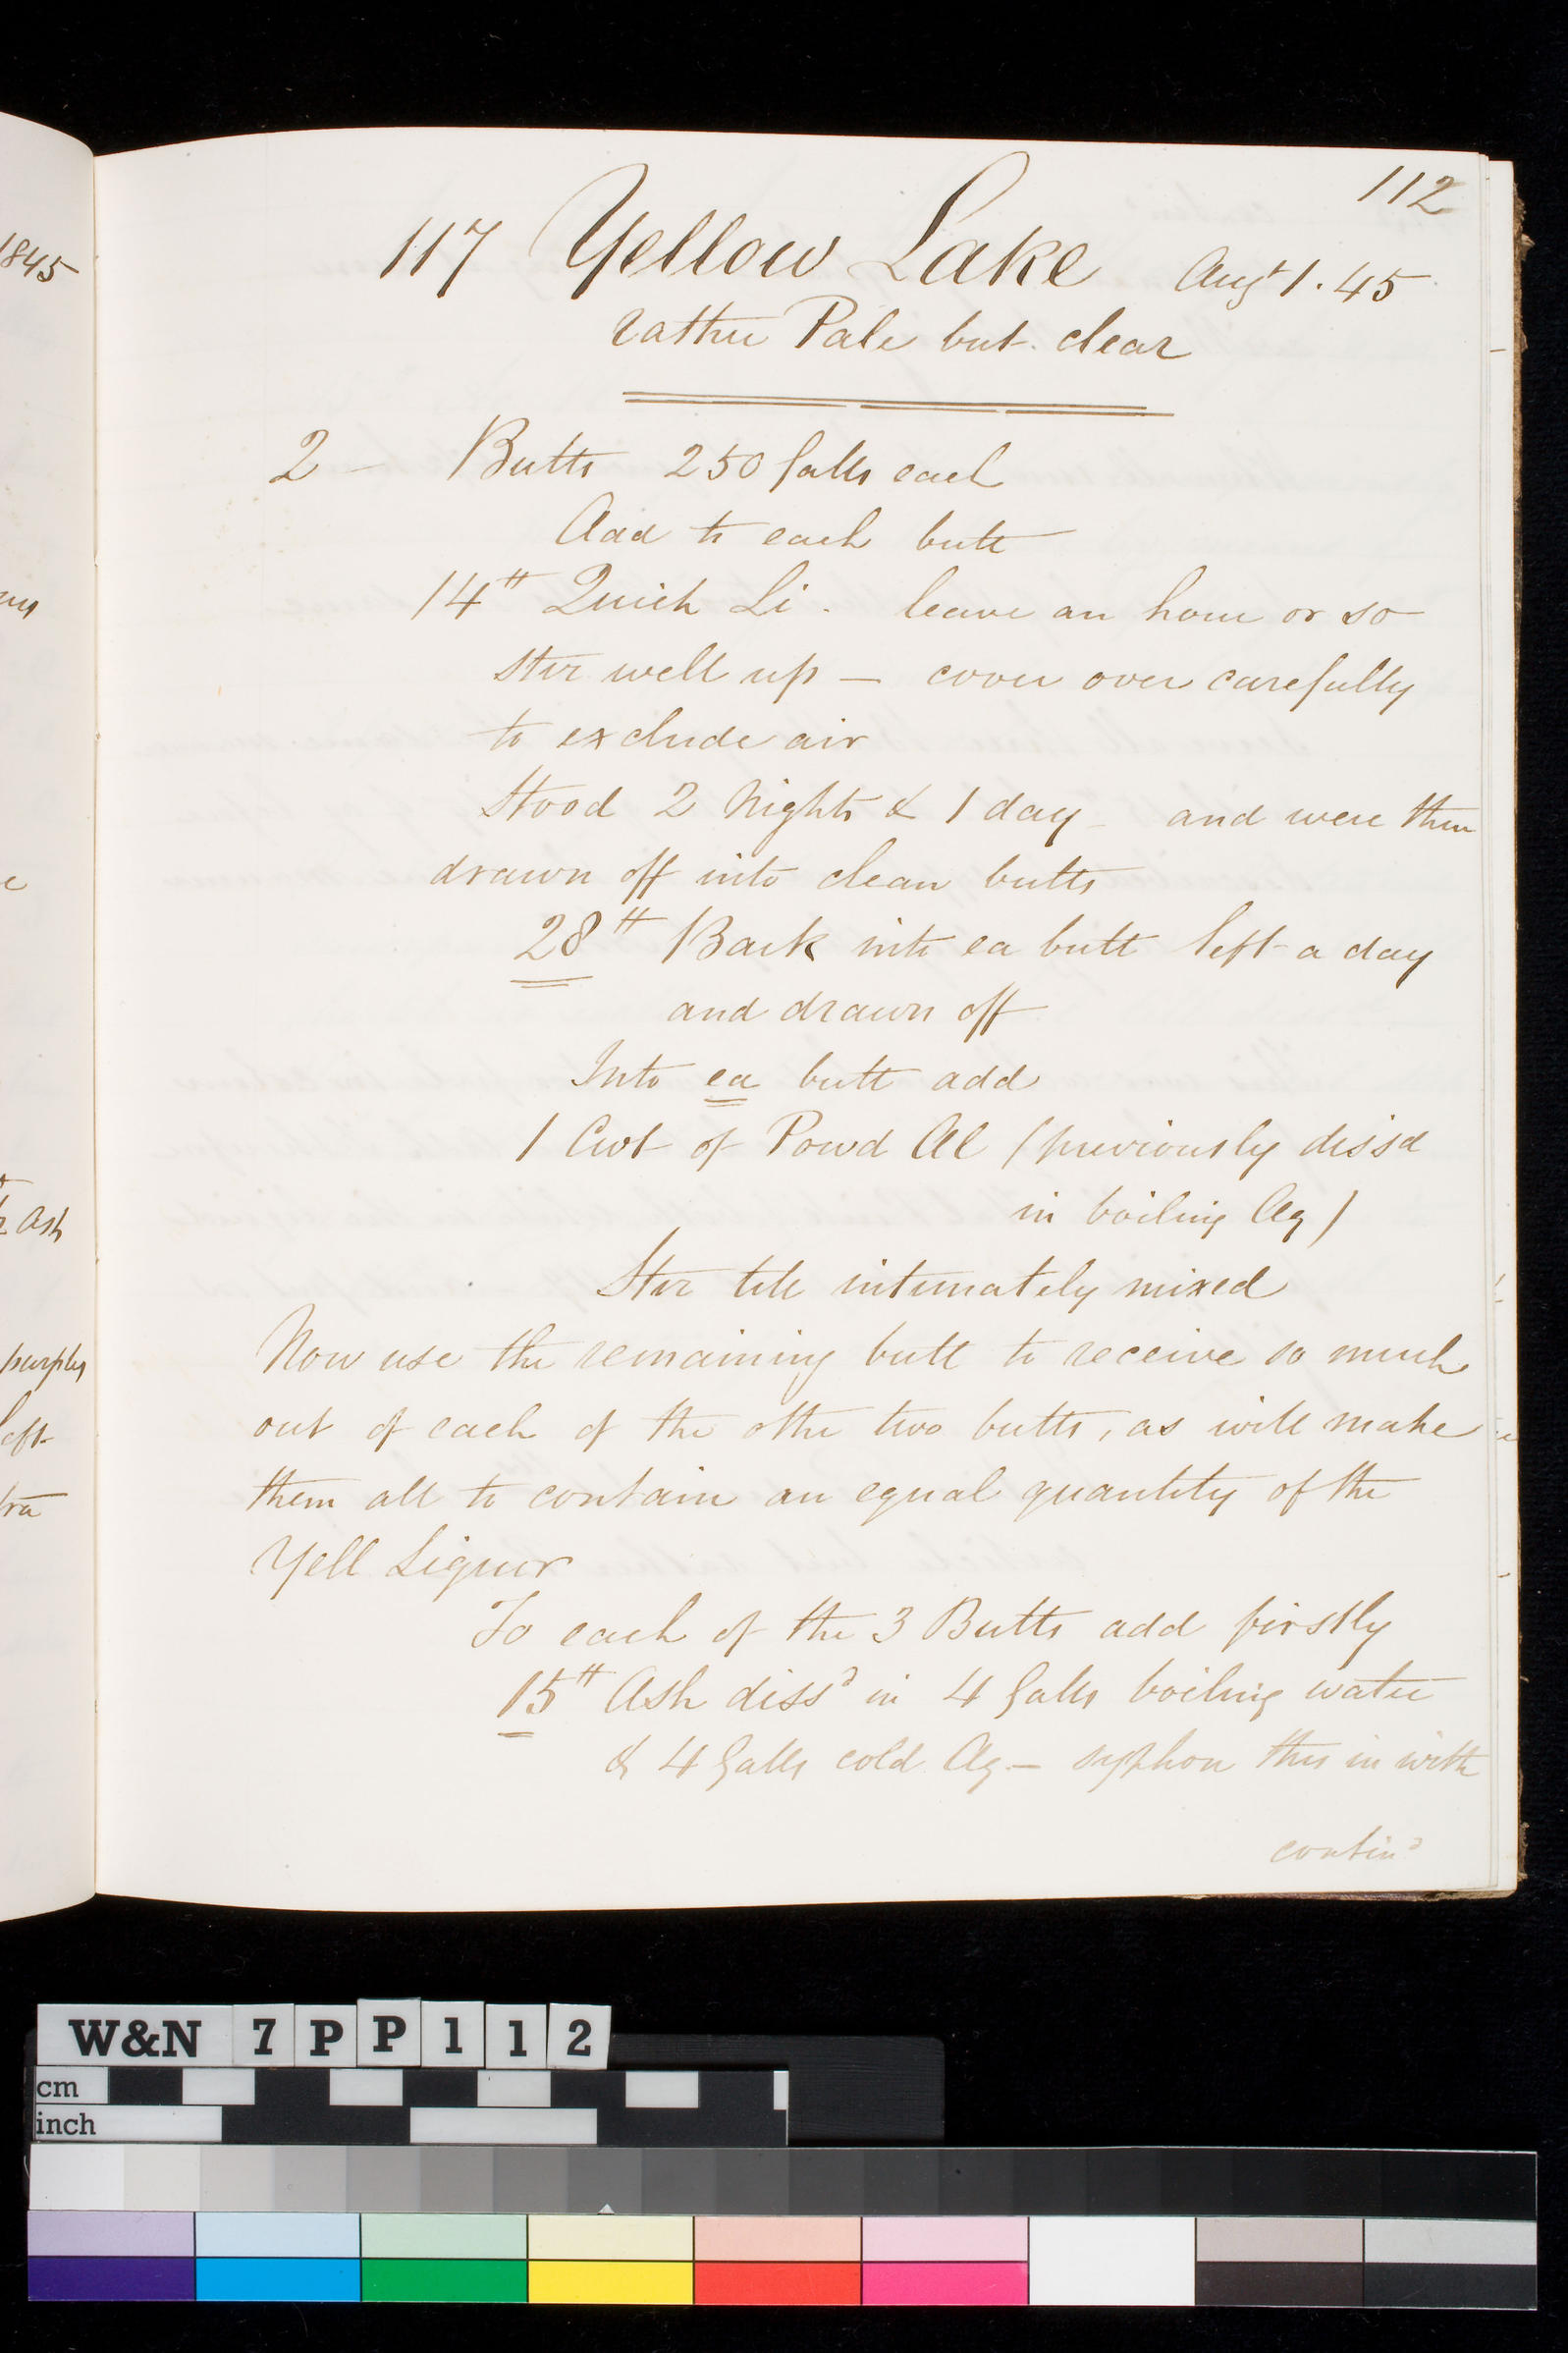 112
117 Yellow Lake Augt 1. 45
rather Pale but clear
2 - Butts 250 Galls each
Add to each butt
14 # Quick Li. leave an hour or so
stir well up — cover over carefully
to exclude air
Stood 2 Nights & 1 day - and were then
drawn off into clean butts
28 # Bark into ea butt left a day
and drawn off
Into ea butt add
1 Cwt of Powd Al (previously diss'd
in boiling Aq)
Stir till intimately mixed
Now use the remaining butt to receive so much
out of each of the other two butts, as will make
them all to contain an equal quantity of the
Yell Liquor
To each of the 3 Butts add firstly
15 # Ash dissd in 4 Galls boiling water
& 4 Galls cold Aq — syphon this in with
contind
1845
e
Ash
purply
left
W&N 7 P P 1 1 2
cm
inch